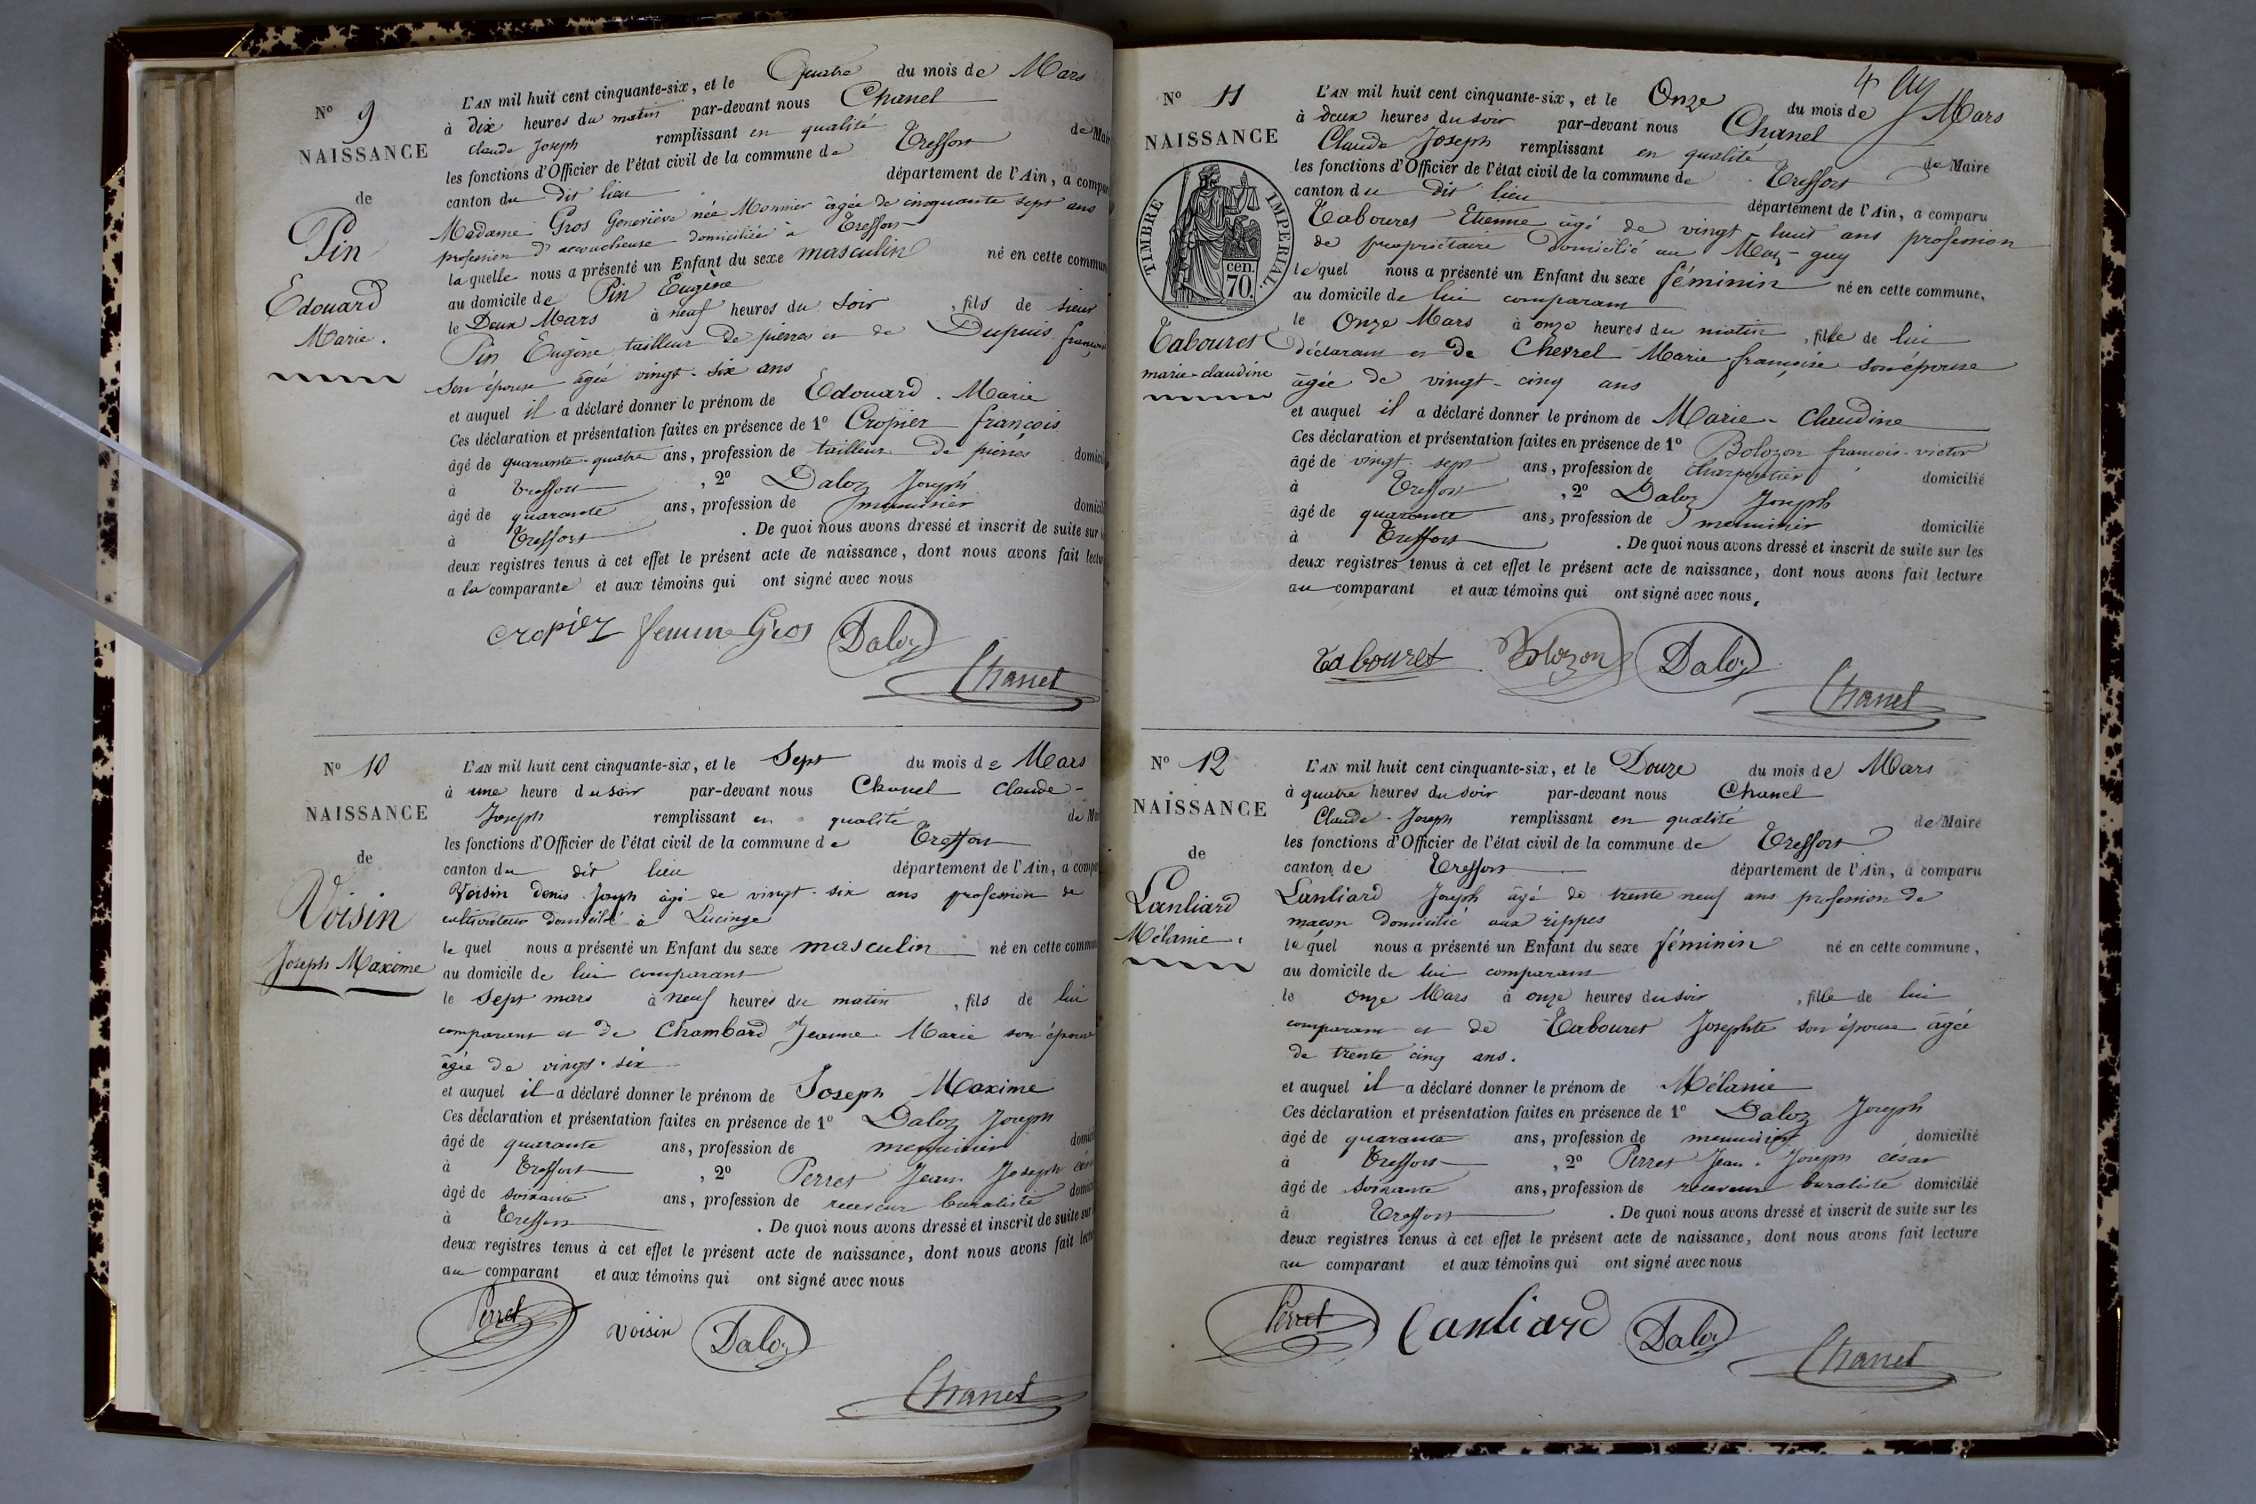 N° 9
NAISSANCE
de
Pin
Edouard
Marie.
L'AN mil huit cent cinquante-six, et le Quatre du mois de Mars
à dix heures du matin par-devant nous Chanel
Claude Joseph remplissant en qualité de Mair
les fonctions d'Officier de l'état civil de la commune de Treffort
canton du dit lieu département de l'Ain, a compar
Madame Gros Geneviève née Monnier âgée de cinquante sept ans
profession d'accoucheuse domiciliée à Treffort
laquelle nous a présenté un Enfant du sexe masculin né en cette commun
au domicile de Pin Eugène
le Deux Mars à neuf heures du soir, fils de sieur
Pin Eugène tailleur de pierres et de Dupuis françoise
son épouse âgée vingt-six ans
et auquel il a déclaré donner le prénom de Edouard. Marie
Ces déclaration et présentation faites en présence de 1° Cropier françois
âgé de quarante-quatre ans, profession de tailleur de pierres domicil
à Treffort, 2° Daloz Joseph
âgé de quarante ans, profession de menuisier domicil
à Treffort. De quoi nous avons dressé et inscrit de suite sur l
deux registres tenus à cet effet le présent acte de naissance, dont nous avons fait lectu
a la comparante et aux témoins qui ont signé avec nous
cropier femme Gros Daloz
Chanel
N° 10
NAISSANCE
de
Voisin
Joseph Maxime
L'AN mil huit cent cinquante-six, et le Sept du mois de Mars
à une heure du soir par-devant nous Chanel Claude-
Joseph remplissant en qualité de Mai
les fonctions d'Officier de l'état civil de la commune de Treffort
canton du dit lieu département de l'Ain, a compa
Voisin denis Joseph âgé de vingt-six ans profession de
cultivateur domicilié à Lucinge
le quel nous a présenté un Enfant du sexe masculin né en cette commun
au domicile de lui comparant
le sept mars à neuf heures du matin, fils de lui
comparant et de Chambard Jeanne Marie son épouse
âgée de vingt-six
et auquel il a déclaré donner le prénom de Joseph Maxime
Ces déclaration et présentation faites en présence de 1° Daloz Joseph
âgé de quarante ans, profession de menuisier domici
à Treffort, 2° Perret Jean Joseph cés
âgé de soixante ans, profession de receveur buraliste domici
à Treffort. De quoi nous avons dressé et inscrit de suite sur l
deux registres tenus à cet effet le présent acte de naissance, dont nous avons fait lect
au comparant et aux témoins qui ont signé avec nous
Perret voisin Daloz
Chanel
4
N° 11
NAISSANCE
TIMBRE IMPERIAL.
cen.
70.
Tabouret
marie-claudine
L'AN mil huit cent cinquante-six, et le Onze du mois de Mars
à deux heures du soir par-devant nous Chanel
Claude Joseph remplissant en qualité de Maire
les fonctions d'Officier de l'état civil de la commune de Treffort
canton du dit lieu département de l'Ain, a comparu
Tabouret Etienne âgé de vingt huit ans profession
de propriétaire domicilié au Mas-guy
le quel nous a présenté un Enfant du sexe féminin né en cette commune,
au domicile de lui comparant
le Onze Mars à onze heures du matin, fille de lui
déclarant et de Chevrel Marie françoise son épouse
âgée de vingt-cinq ans
et auquel il a déclaré donner le prénom de Marie-Claudine
Ces déclaration et présentation faites en présence de 1° Bolozon françois-victor
âgé de vingt-sept ans, profession de charpentier domicilié
à Treffort, 2° Daloz Joseph
âgé de quarante ans, profession de menuisier domicilié
à Treffort. De quoi nous avons dressé et inscrit de suite sur les
deux registres tenus à cet effet le présent acte de naissance, dont nous avons fait lecture
au comparant et aux témoins qui ont signé avec nous.
Tabouret Bolozon Daloz
Chanel
N° 12
NAISSANCE
de
Lanliard
Mélanie.
L'AN mil huit cent cinquante-six, et le Douze du mois de Mars
à quatre heures du soir par-devant nous Chanel
Claude-Joseph remplissant en qualité de Maire
les fonctions d'Officier de l'état civil de la commune de Treffort
canton de Treffort département de l'Ain, a comparu
Lanliard Joseph âgé de trente neuf ans profession de
maçon domicilié aux rippes
le quel nous a présenté un Enfant du sexe féminin né en cette commune,
au domicile de lui comparant
le onze Mars à onze heures du soir, fille de lui
comparant et de Tabouret Josephte son épouse âgée
de trente cinq ans.
et auquel il a déclaré donner le prénom de Mélanie
Ces déclaration et présentation faites en présence de 1° Daloz Joseph
âgé de quarante ans, profession de menuisier domicilié
à Treffort, 2° Perret Jean-Joseph césar
âgé de soixante ans, profession de receveur buraliste domicilié
à Treffort. De quoi nous avons dressé et inscrit de suite sur les
deux registres tenus à cet effet le présent acte de naissance, dont nous avons fait lecture
au comparant et aux témoins qui ont signé avec nous
Perret Lanliard Daloz
Chanel